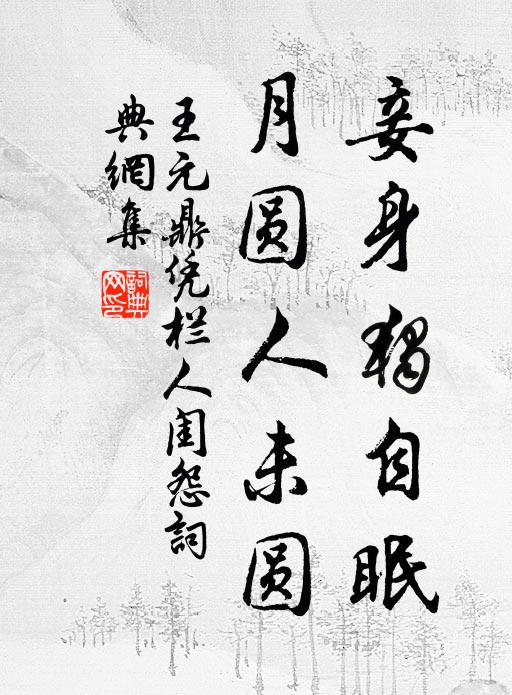 妾身獨自眠
月圆人未圆
王元鼎凭栏人闺怨詞
典網集
詞典网印